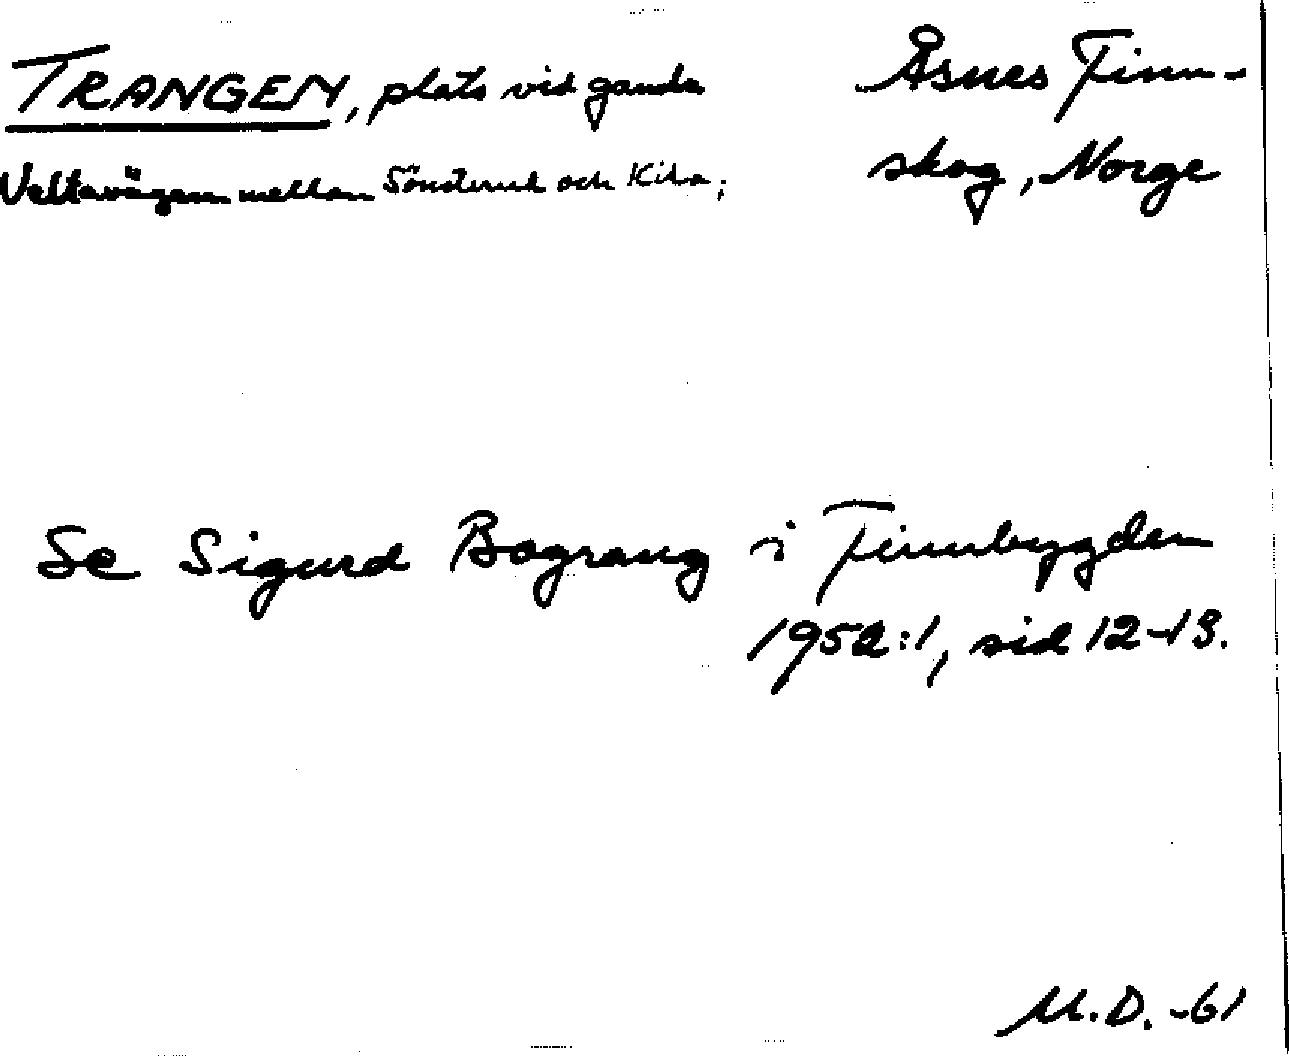 TRANGEN, plats vid gamla
Veltavägen mellan Sönsterud och Kila;
Åsnes Finn-
skog, Norge
Se Sigurd Bograng i Finnbygden
1952:1, sid 12-13.
M.D. -61